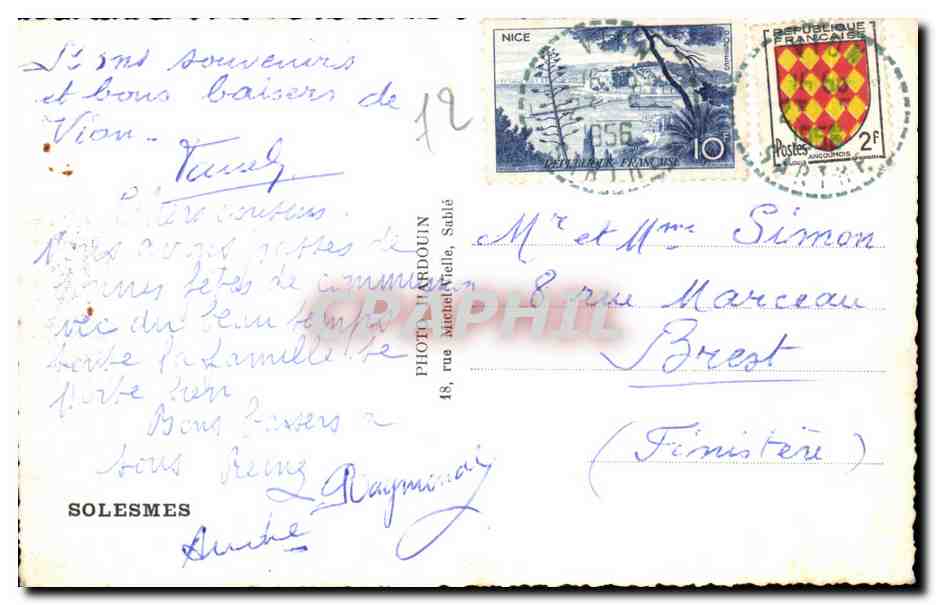 et bons baisers de
Vion.
12
Chers cousins.
Nous avons passés de
bonnes fetes de communion
avec du beau temps
toute la famille se
porte bien
Bons baisers a
tous
Raymonde
André
SOLESMES
PHOTO J. HARDOUIN
18, rue Michel-Vielle, Sablé
GRAPHIL
NICE
POSTES
10F
REPUBLIQUE FRANÇAISE
1956
REPUBLIQUE
FRANÇAISE
Postes
ANGOUMOIS
2F
1956
SARTHE
Mr et Mme Simon
8 rue Marceau
Brest
(Finistère)